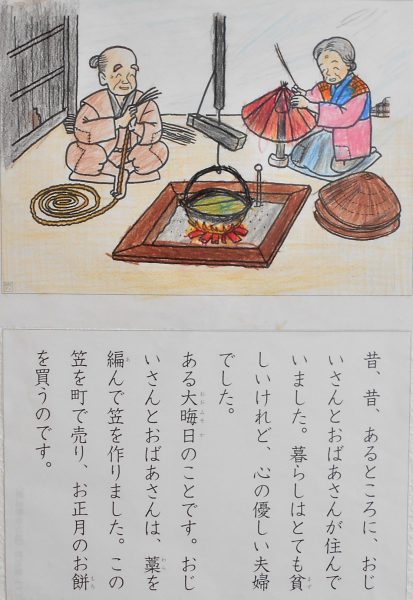 昔、昔、あるところに、おじ
いさんとおばあさんが住んで
いました。暮らしはとても貧
しいけれど、心の優しい夫婦
でした。
ある大晦日のことです。おじ
いさんとおばあさんは、藁を
編んで笠を作りました。この
笠を町で売り、お正月のお餅
を買うのです。